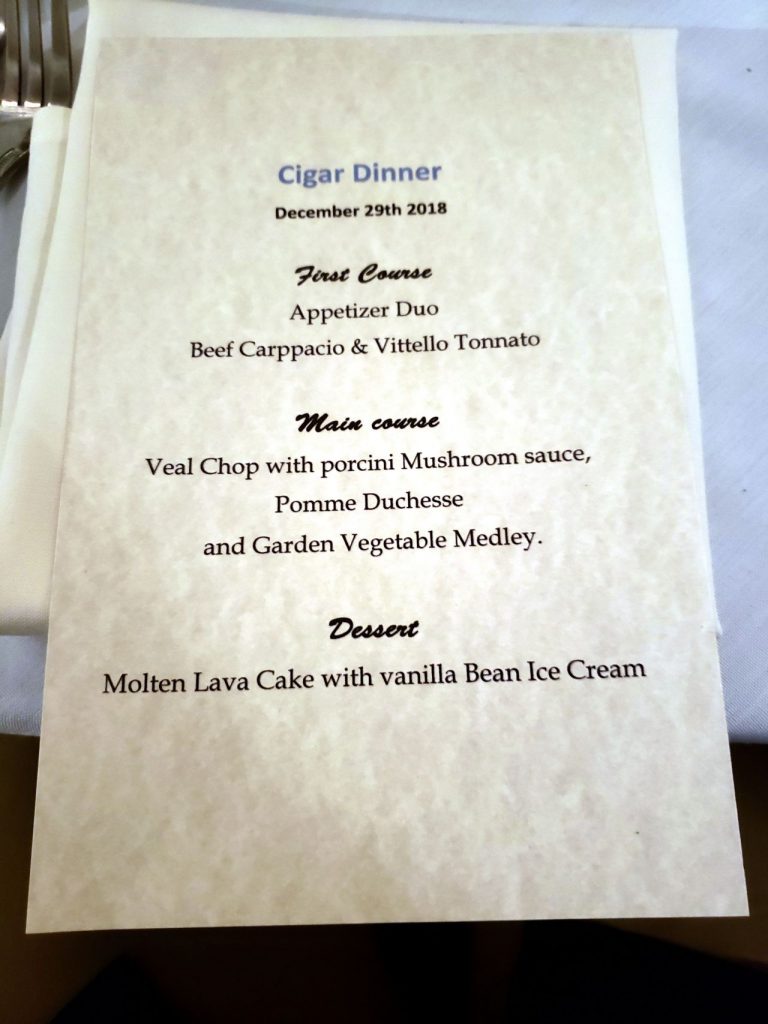 Cigar Dinner
December 29th 2018
First Course
Appetizer Duo
Beef Carppacio & Vittello Tonnato
Main course
Veal Chop with porcini Mushroom sauce,
Pomme Duchesse
and Garden Vegetable Medley.
Dessert
Molten Lava Cake with vanilla Bean Ice Cream